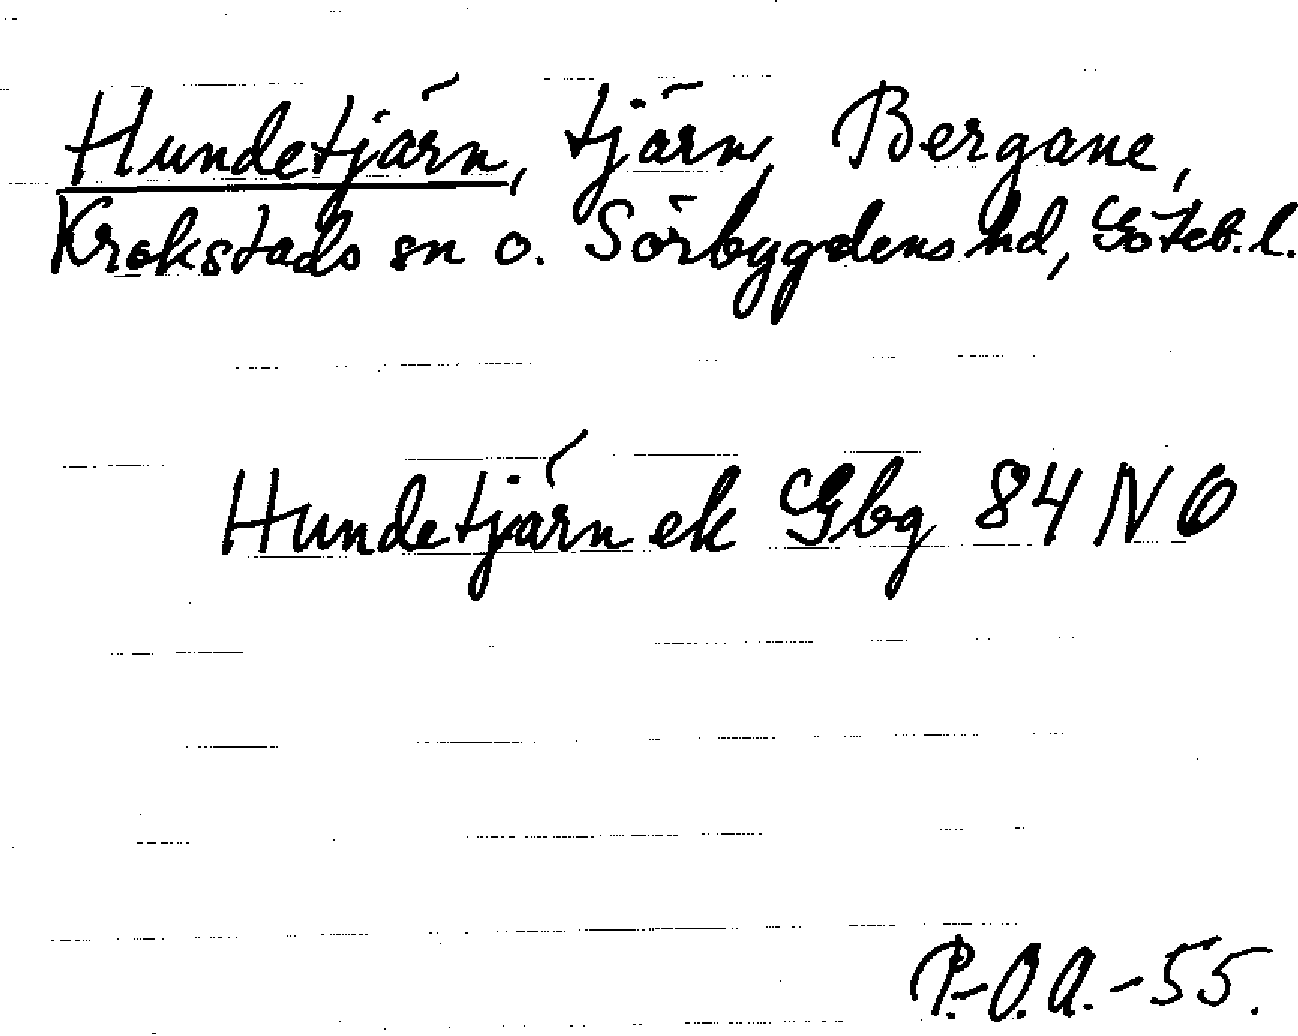 Hundetjärn, tjärn, Bergane,
Krokstads sn o. Sörbygdens hd, Göteb. l.
Hundetjärn ek Gbg 84 NO
P.-O.A.-55.